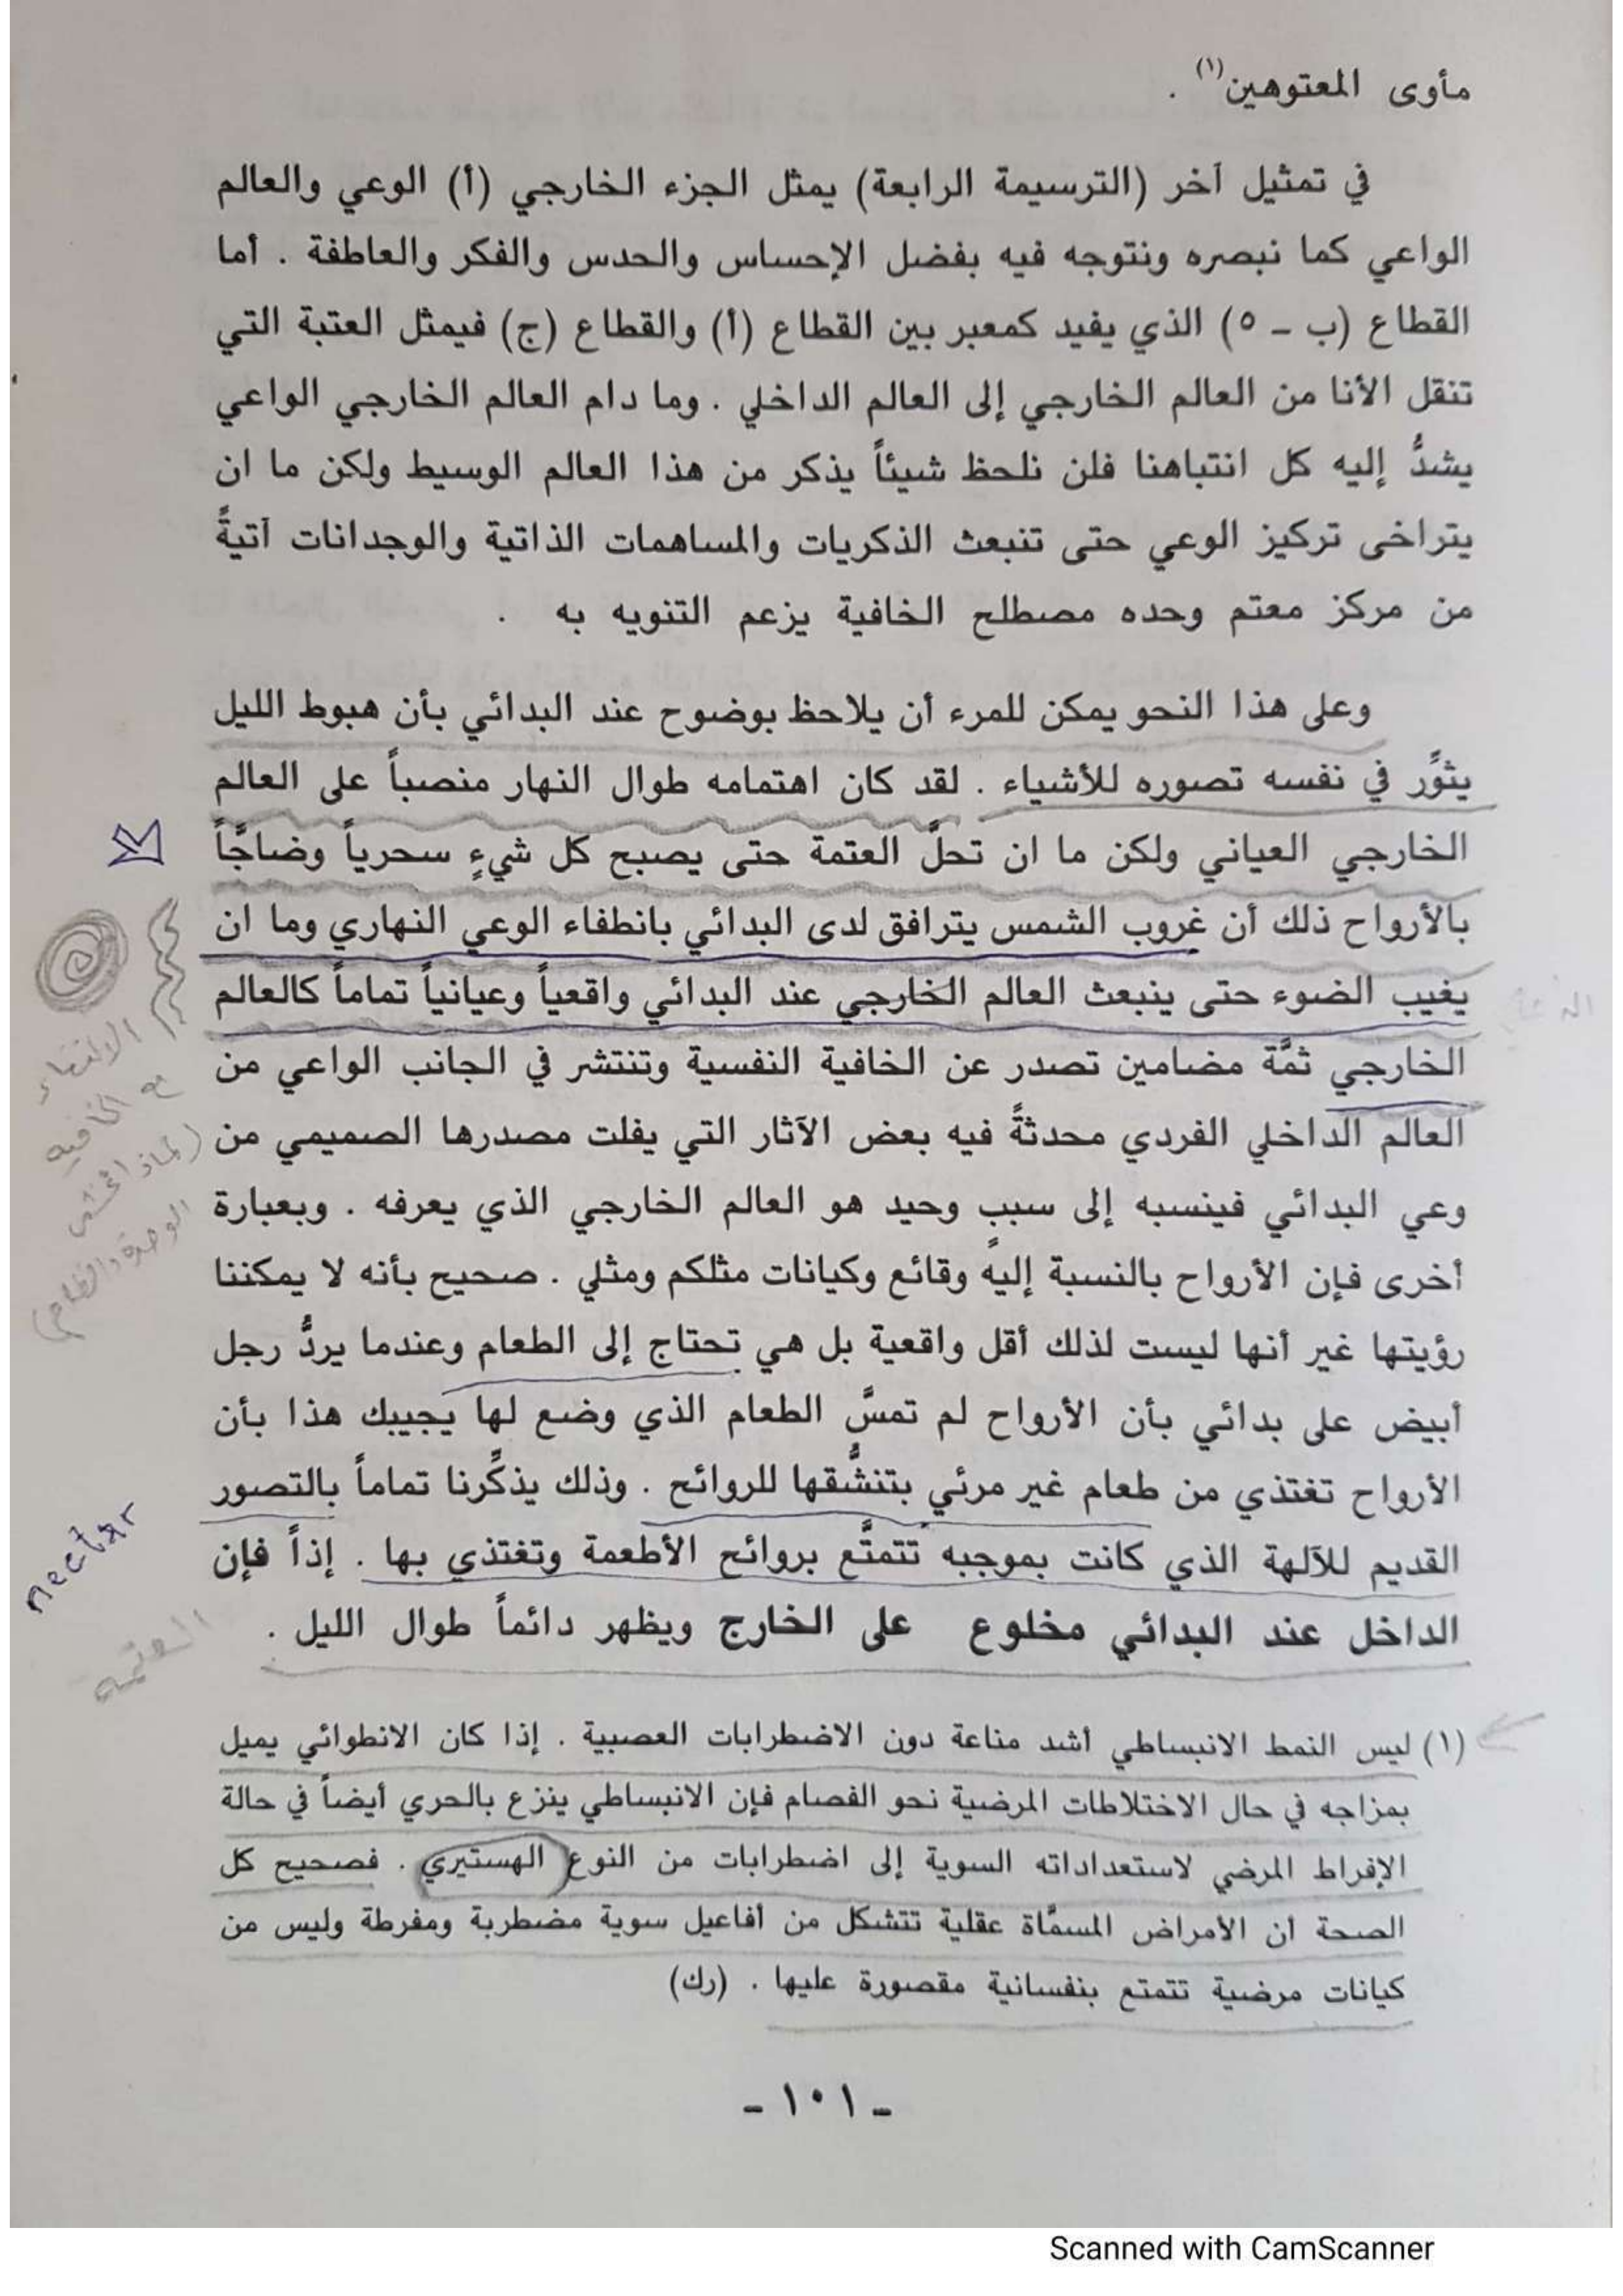 مأوى المعتوهين(١) .
في تمثيل آخر (الترسيمة الرابعة) يمثل الجزء الخارجي (أ) الوعي والعالم
الواعي كما نبصره ونتوجه فيه بفضل الإحساس والحدس والفكر والعاطفة . أما
القطاع (ب - ٥) الذي يفيد كمعبر بين القطاع (أ) والقطاع (ج) فيمثل العتبة التي
تنقل الأنا من العالم الخارجي إلى العالم الداخلي . وما دام العالم الخارجي الواعي
يشدُّ إليه كل انتباهنا فلن نلحظ شيئاً يذكر من هذا العالم الوسيط ولكن ما ان
يتراخى تركيز الوعي حتى تنبعث الذكريات والمساهمات الذاتية والوجدانات آتيةً
من مركز معتم وحده مصطلح الخافية يزعم التنويه به .
وعلى هذا النحو يمكن للمرء أن يلاحظ بوضوح عند البدائي بأن هبوط الليل
يثوِّر في نفسه تصوره للأشياء . لقد كان اهتمامه طوال النهار منصباً على العالم
الخارجي العياني ولكن ما ان تحلَّ العتمة حتى يصبح كل شيءٍ سحرياً وضاجّاً
بالأرواح ذلك أن غروب الشمس يترافق لدى البدائي بانطفاء الوعي النهاري وما ان
يغيب الضوء حتى ينبعث العالم الخارجي عند البدائي واقعياً وعيانياً تماماً كالعالم
الخارجي ثمَّة مضامين تصدر عن الخافية النفسية وتنتشر في الجانب الواعي من
العالم الداخلي الفردي محدثةً فيه بعض الآثار التي يفلت مصدرها الصميمي من
وعي البدائي فينسبه إلى سببٍ وحيد هو العالم الخارجي الذي يعرفه . وبعبارة
أخرى فإن الأرواح بالنسبة إليه وقائع وكيانات مثلكم ومثلي . صحيح بأنه لا يمكننا
رؤيتها غير أنها ليست لذلك أقل واقعية بل هي تحتاج إلى الطعام وعندما يردُّ رجل
أبيض على بدائي بأن الأرواح لم تمسَّ الطعام الذي وضع لها يجيبك هذا بأن
الأرواح تغتذي من طعام غير مرئي بتنشُّقها للروائح . وذلك يذكِّرنا تماماً بالتصور
القديم للآلهة الذي كانت بموجبه تتمتَّع بروائح الأطعمة وتغتذي بها . إذاً فإن
الداخل عند البدائي مخلوع على الخارج ويظهر دائماً طوال الليل .
الانتهاء
مع الخافيه
(لماذا نخشى
الوحدة والظلام)
nectar
العتمه
(١) ليس النمط الانبساطي أشد مناعة دون الاضطرابات العصبية . إذا كان الانطوائي يميل
بمزاجه في حال الاختلاطات المرضية نحو الفصام فإن الانبساطي ينزع بالحري أيضاً في حالة
الإفراط المرضي لاستعداداته السوية إلى اضطرابات من النوع الهستيري . فصحيح كل
الصحة أن الأمراض المسمَّاة عقلية تتشكل من أفاعيل سوية مضطربة ومفرطة وليس من
كيانات مرضية تتمتع بنفسانية مقصورة عليها . (رك)
- ١٠١ -
Scanned with CamScanner